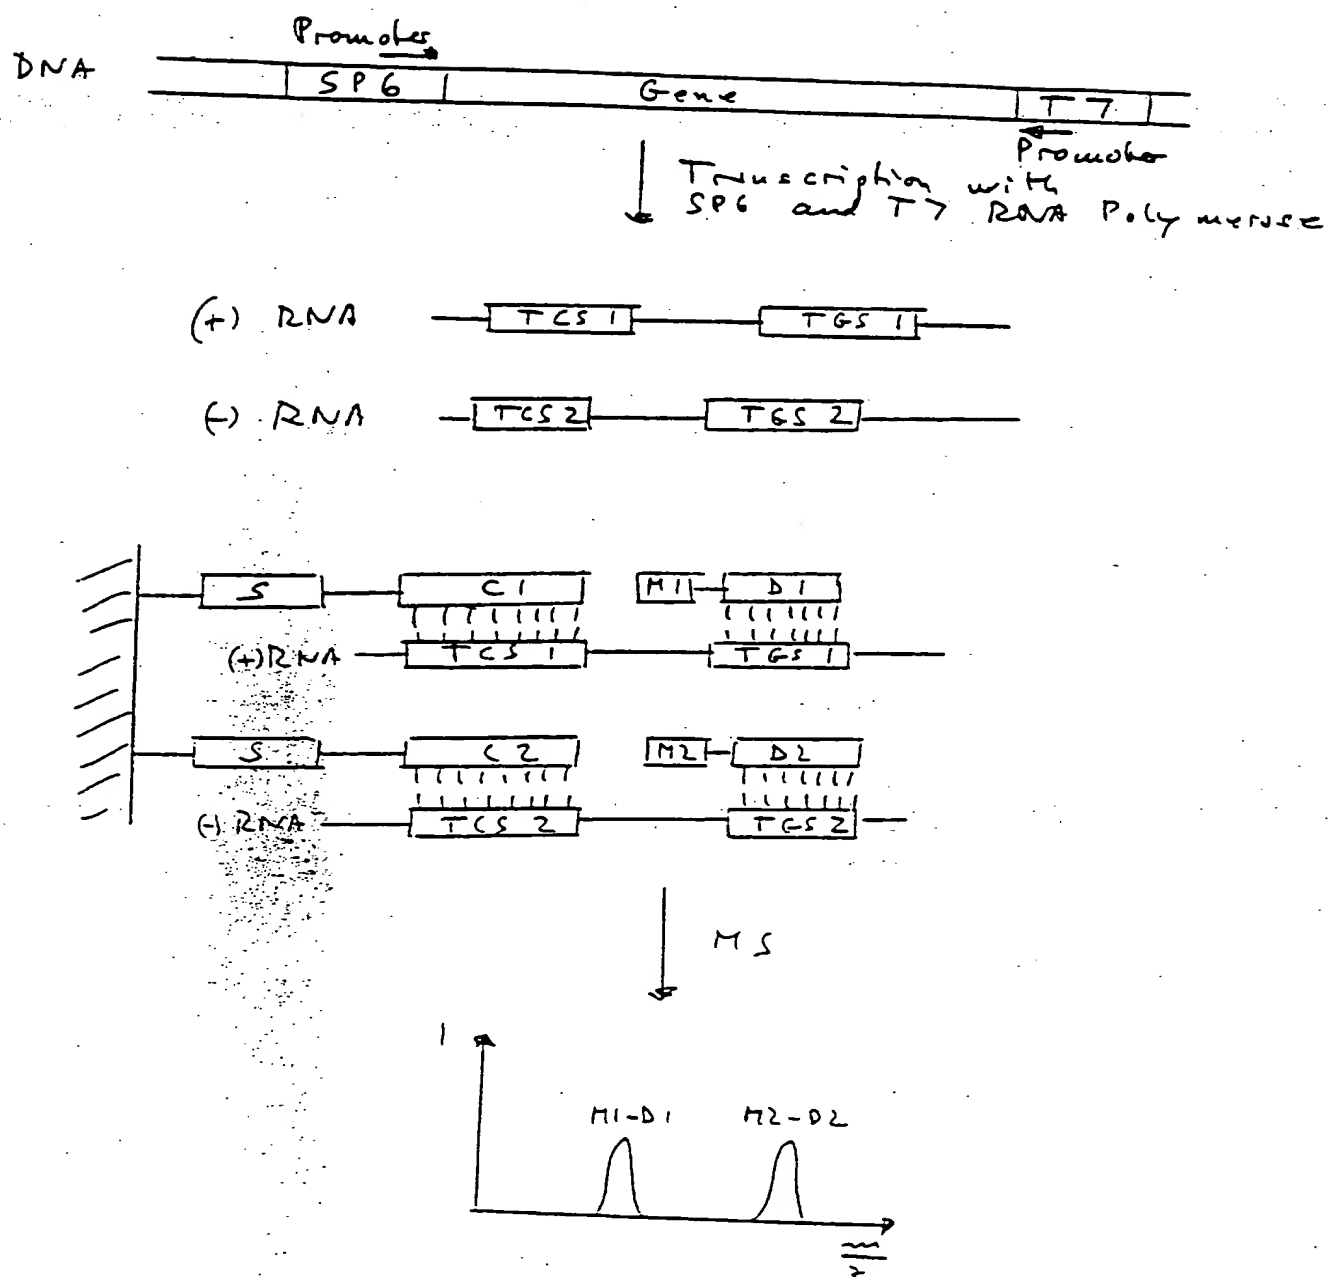 Promoter
DNA
SP6 Gene T7
Promoter
Transcription with
SP6 and T7 RNA Polymerase
(+) RNA TCS1 TGS1
(-) RNA TCS2 TGS2
S C1 M1 D1
(+)RNA TCS1 TGS1
S C2 M2 D2
(-)RNA TCS2 TGS2
MS
I
M1-D1 M2-D2
m
z